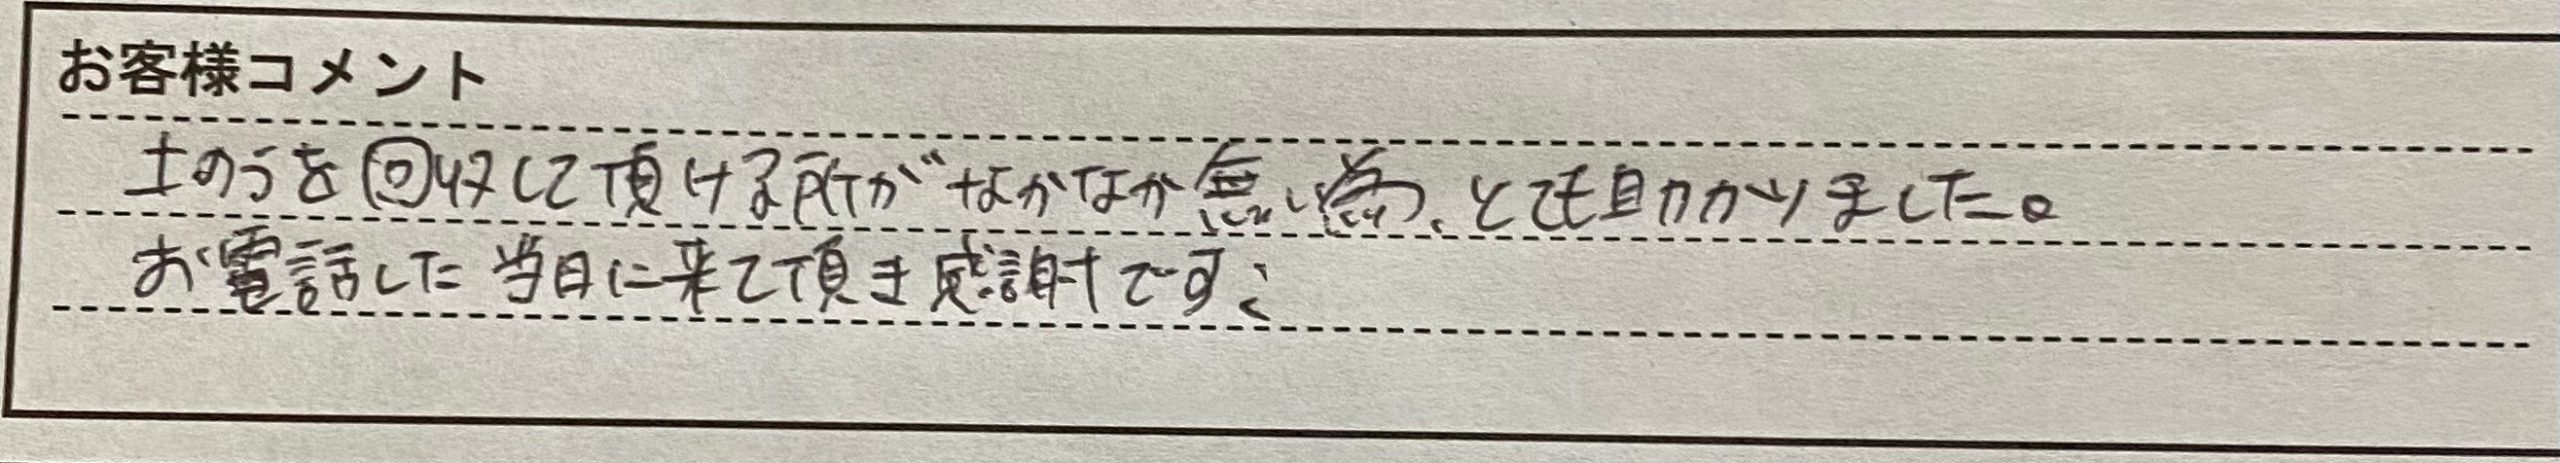 お客様コメント
土のうを回収して頂ける所がなかなか無い為、とても助かりました。
お電話した当日に来て頂き感謝です!